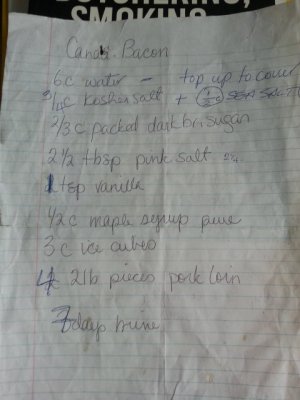 BUTCHERING,
SMOKING,
Canad. Bacon
6c water - top up to cover
3/4c koshersalt + 1/2c SEA SALT
2/3 c packed dark br. sugar
2 1/2 tbsp pink salt
1 tsp vanilla
1/2 c maple syrup pure
3 c ice cubes
4 2lb pieces pork loin
7 days brine